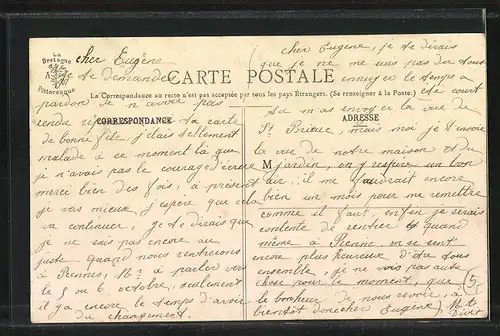 LA
Bretagne
Pittoresque
CARTE POSTALE
La Correspondance au recto n'est pas acceptée par tous les pays Étrangers. (Se renseigner à la Poste.)
CORRESPONDANCE
ADRESSE
M
cher Eugène
je te demande
pardon de n'avoir pas
rendu réponse à ta carte
de bonne fête j'étais tellement
malade à ce moment là que
je n'avais pas le courage d'écrire
merci bien des fois, à présent
je vais mieux j'espère que cela
va continuer, je te dirais que
je ne sais pas encore au
juste quand nous rentrerons
à Rennes, à parler vers
le 5 ou 6 octobre, seulement
il y a encore le temps d'avoir
du changement.
cher Eugène, je te dirais
que je ne me suis pas du tout
ennuyée le temps a
été court
tu m'as envoyé la vue de
St Brieuc, mais moi je t'envoie
la vue de notre maison et du
jardin, on y respire un bon
air, il me faudrait encore
bien un mois pour me remettre
comme il faut, enfin je serais
contente de rentrer quand
même à Rennes on se sent
encore plus heureux d'être tous
ensemble, je ne vois pas autre
chose pour le moment, que
le bonheur de nous revoir, à
bientôt donc cher Eugène
5